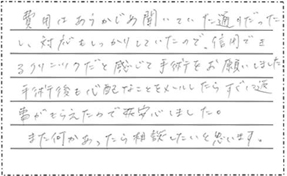 費用はあらかじめ聞いていた通りだった
し、対応もしっかりしていたので、信用でき
るクリニックだと感じて手術をお願いしました
手術後も心配なことをメールしたらすぐに返
事がもらえたので安心しました。
また何かあったら相談したいと思います。